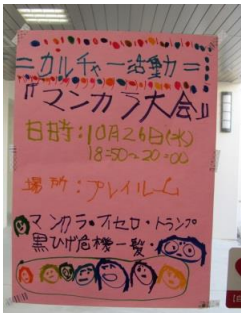 =カルチャー活動=
『マンカラ大会』
日時:10月26日(水)
18:50~20:00
場所:プレイルーム
マンカラ・オセロ・トランプ
黒ひげ危機一髪・